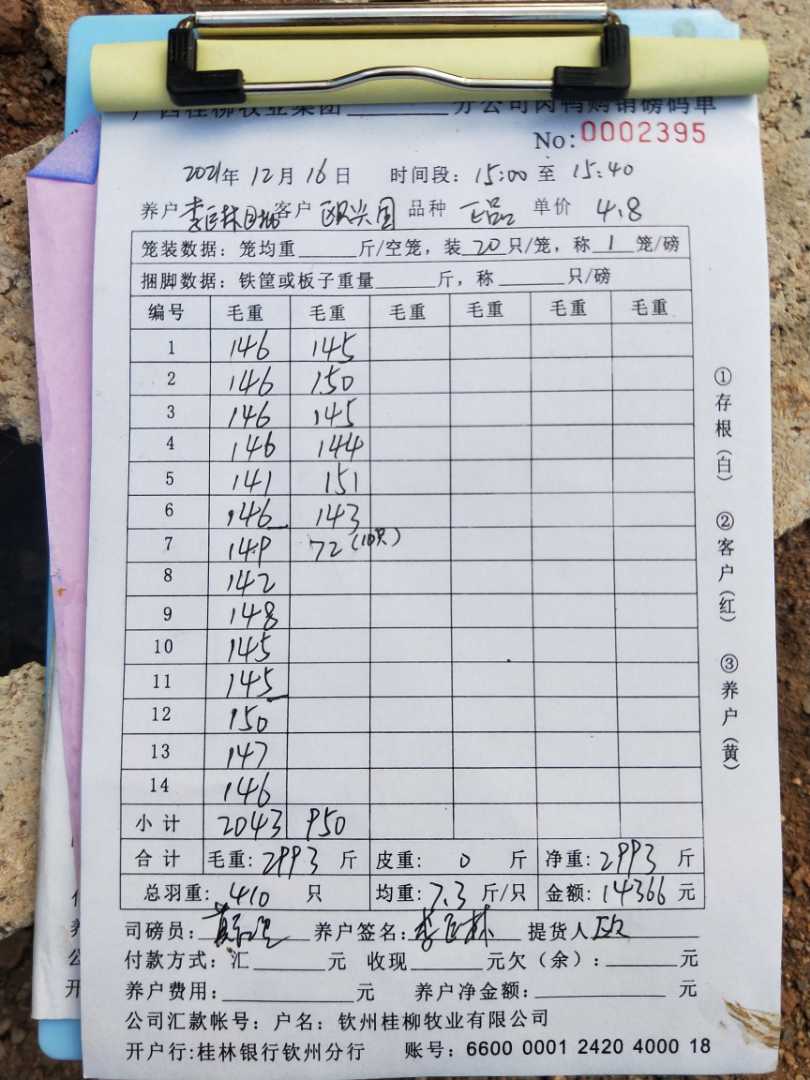 广西桂柳牧业集团______分公司肉鸭购销磅码单
No:0002395
2021年 12月 16日 时间段：15:00 至 15:40
养户 李 林自 客户 欧兴国 品种 正品 单价 4.8
笼装数据：笼均重______斤/空笼，装 20 只/笼，称 1 笼/磅
捆脚数据：铁筐或板子重量______斤，称______只/磅
编号 毛重 毛重 毛重 毛重 毛重 毛重
1 146 145
2 146 150
3 146 145
4 146 144
5 141 151
6 146 143
7 149 72(10只)
8 142
9 148
10 145
11 145
12 150
13 147
14 146
小计 2043 950
合计 毛重：2993 斤 皮重：0 斤 净重：2993 斤
总羽重：410 只 均重：7.3 斤/只 金额：14366 元
司磅员： 养户签名：李 林 提货人 欧
付款方式：汇______元 收现______元欠（余）：______元
养户费用：______元 养户净金额：______元
公司汇款帐号：户名：钦州桂柳牧业有限公司
开户行:桂林银行钦州分行 账号：6600 0001 2420 4000 18
①存根（白） ②客户（红） ③养户（黄）